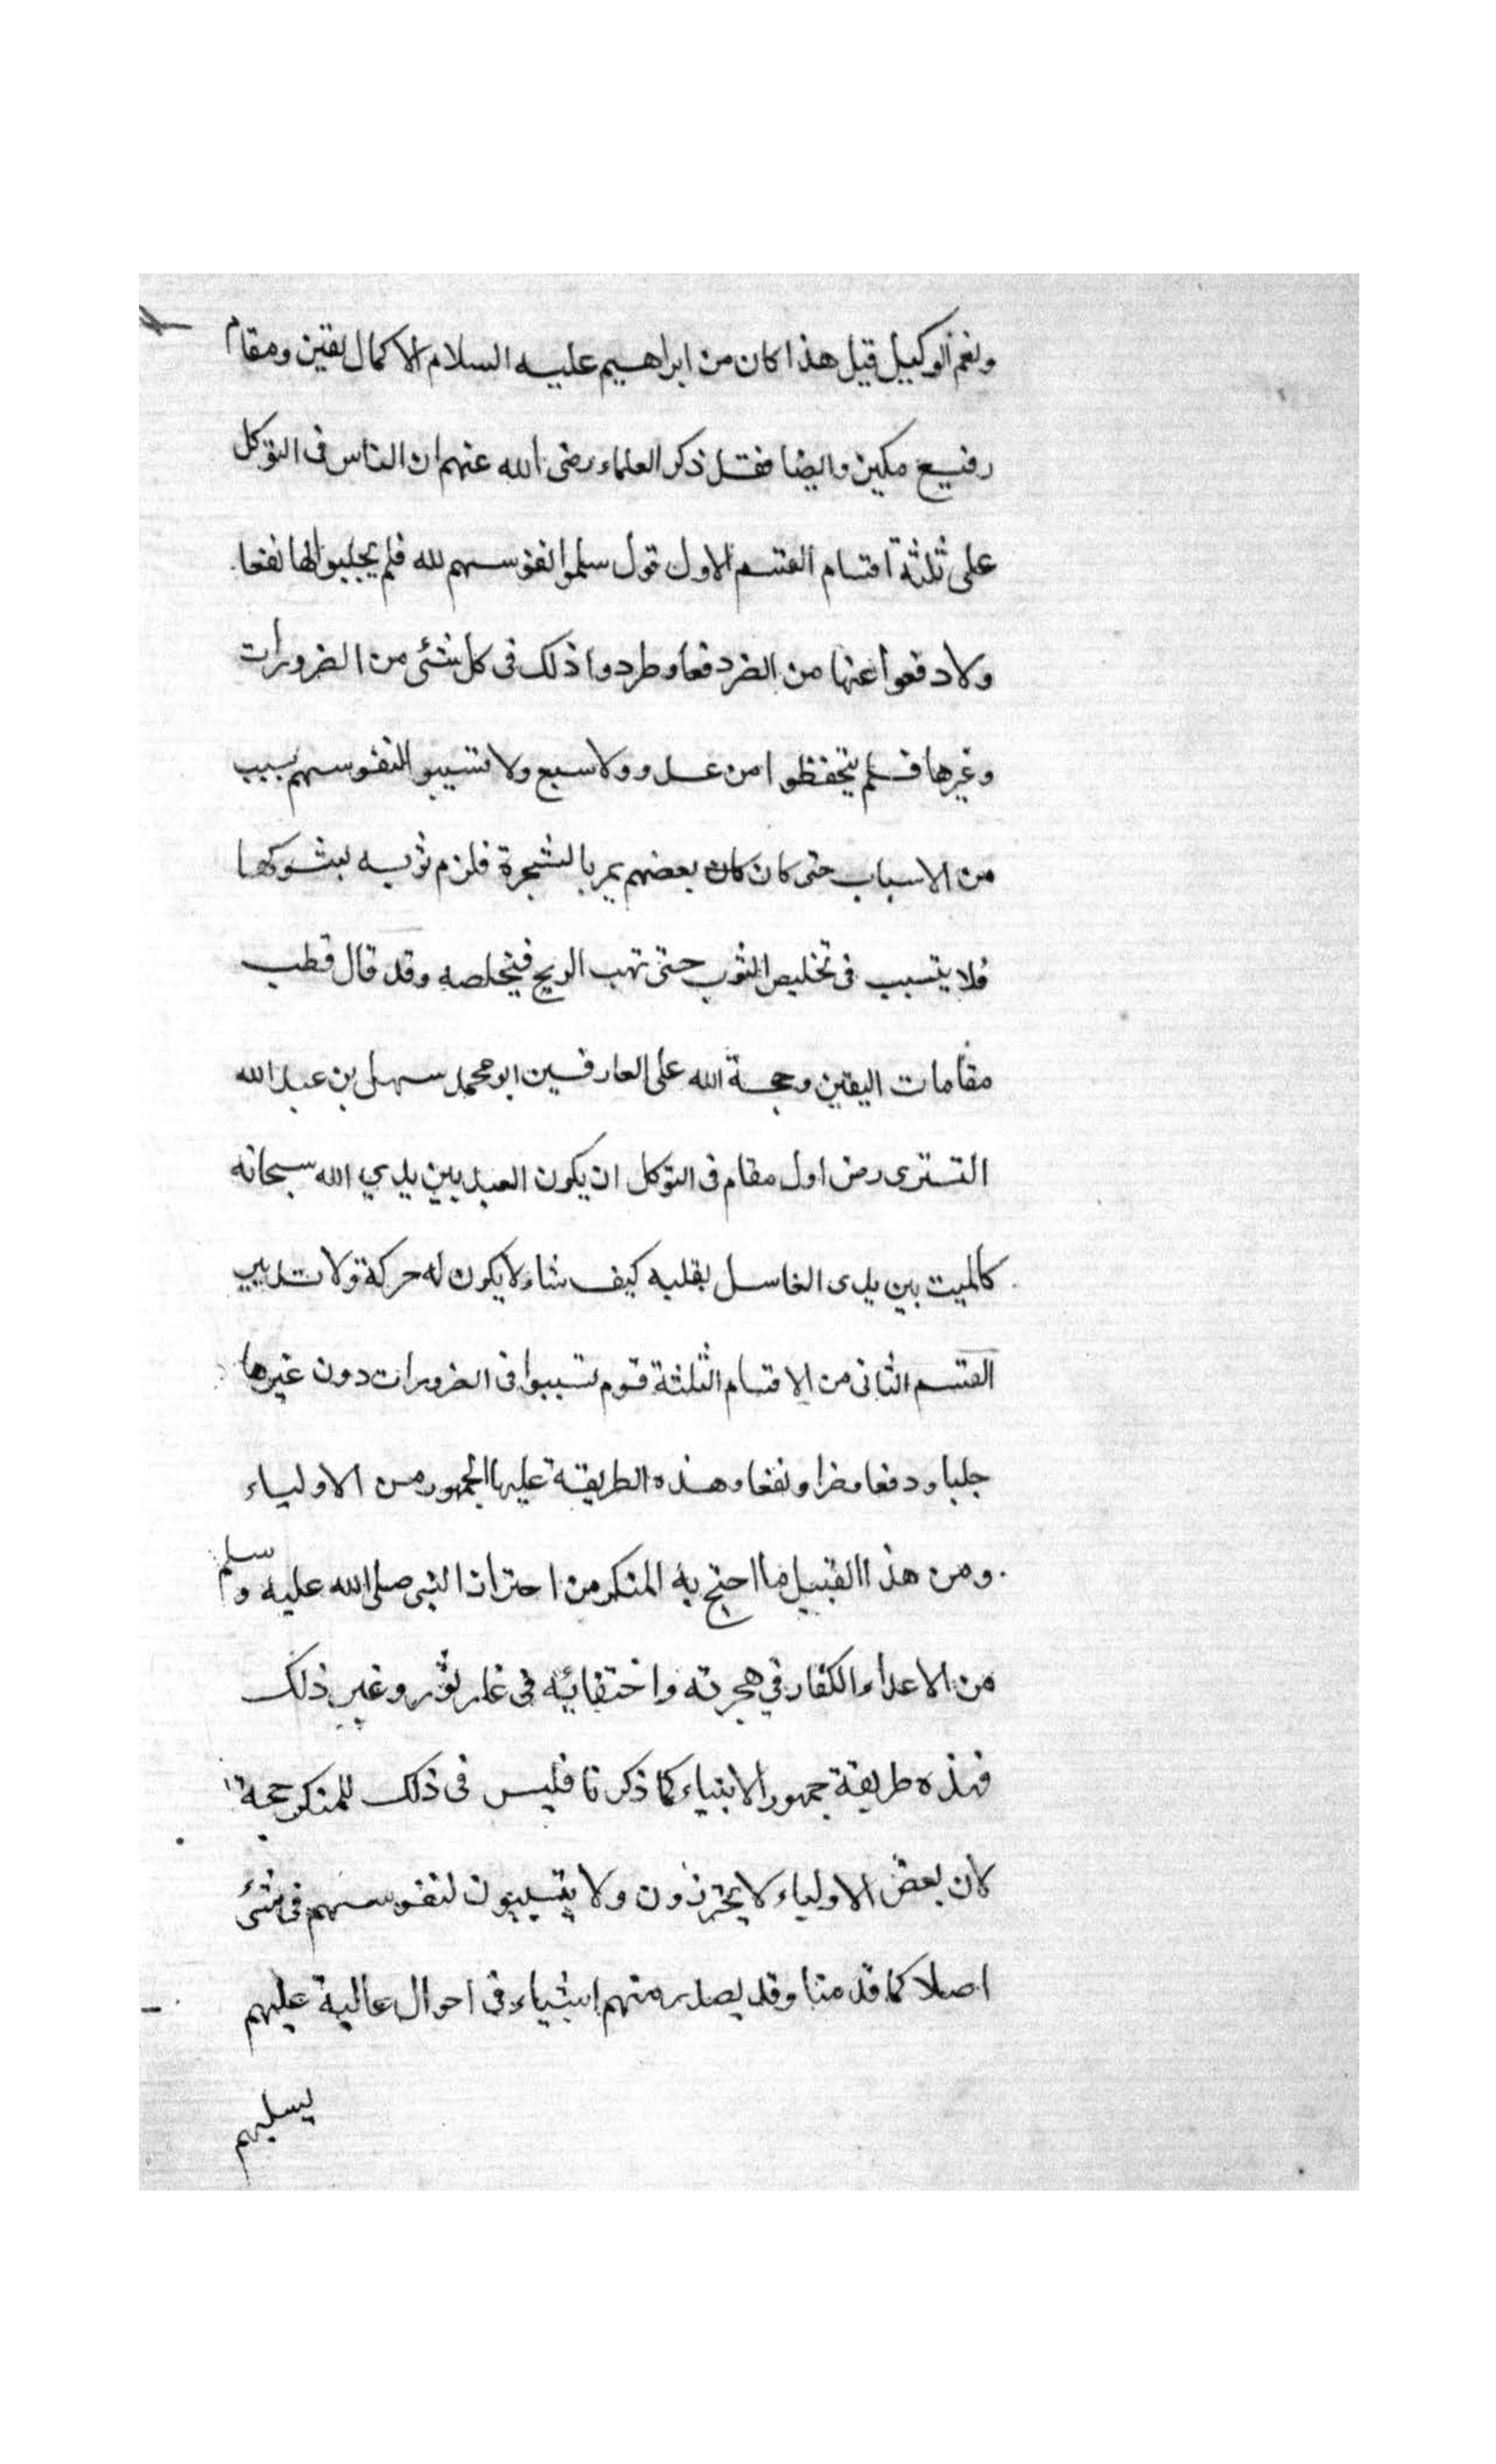 ونعم الوكيل قيل هذا كان من ابراهيم عليه السلام الا كمال يقين ومقام
رفيع مكين وايضا فقد ذكر العلماء رضى الله عنهم ان الناس فى التوكل
على ثلثة اقسام القسم الاول قول سلموا نفوسهم لله فلم يجلبوا لها نفعا
ولا دفعوا عنها من الضر دفعا وطردوا ذلك فى كل شئ من الضرورات
وغيرها فلم يتحفظوا من عدو ولا سبع ولا تسببوا لنفوسهم بسبب
من الاسباب حتى كان كان بعضهم يمر بالشجرة فلزم ثوبه بشوكها
فلا يتسبب فى تخليص الثوب حتى تهب الريح فيخلصه وقد قال قطب
مقامات اليقين وحجة الله على العارفين ابو محمد سهل بن عبد الله
التسترى رض اول مقام فى التوكل ان يكون العبد بين يدي الله سبحانه
كالميت بين يدى الغاسل يقلبه كيف شاء لا يكون له حركة ولا تدبير
القسم الثانى من الاقسام الثلثة قوم تسببوا فى الضرورات دون غيرها
جلبا ودفعا وضرا ونفعا وهذه الطريقة عليها الجمهور من الاولياء
ومن هذا القبيل ما احتج به المنكر من احتراز النبى صلى الله عليه وسلم
من الاعداء الكفار في هجرته واختفائه فى غار ثور وغير ذلك
فهذه طريقة جمهور الانبياء كما ذكرنا فليس فى ذلك للمنكر حجة
لان بعض الاولياء لا يحترزون ولا يتسببون لنفوسهم فى شئ
اصلا كما قدمنا وقد يصدر منهم اشياء فى احوال عالية عليهم
يسلبهم